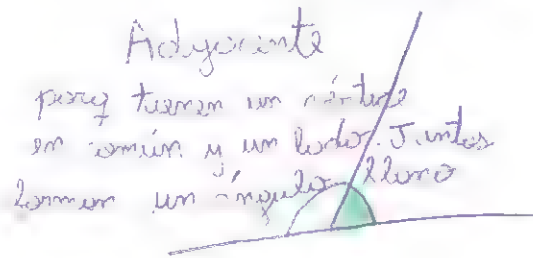 Adyacente
porq tienen un vértice
en común y un lado. Juntos
forman un ángulo llano